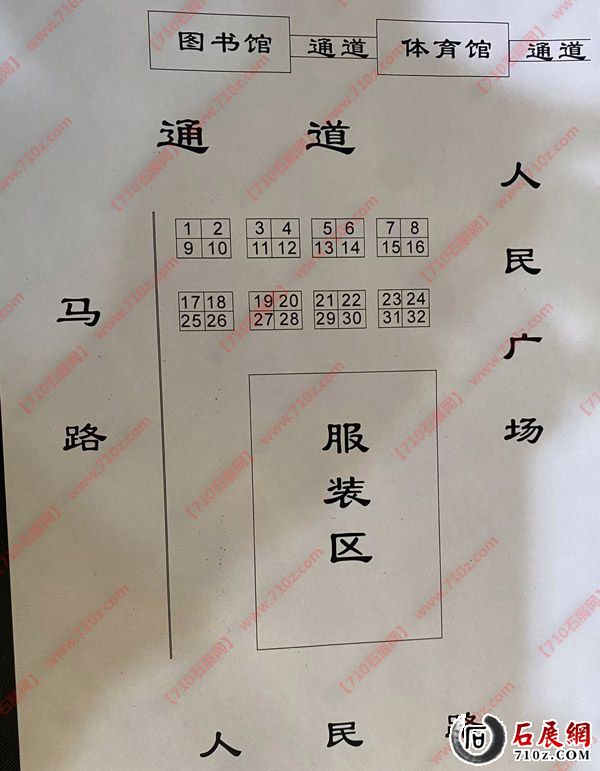 图书馆 通道 体育馆 通道
通道
人民广场
1 2 3 4 5 6 7 8
9 10 11 12 13 14 15 16
17 18 19 20 21 22 23 24
25 26 27 28 29 30 31 32
马路
服装区
人民路
【710石展网】 www.710z.com
石展網
710Z.COM